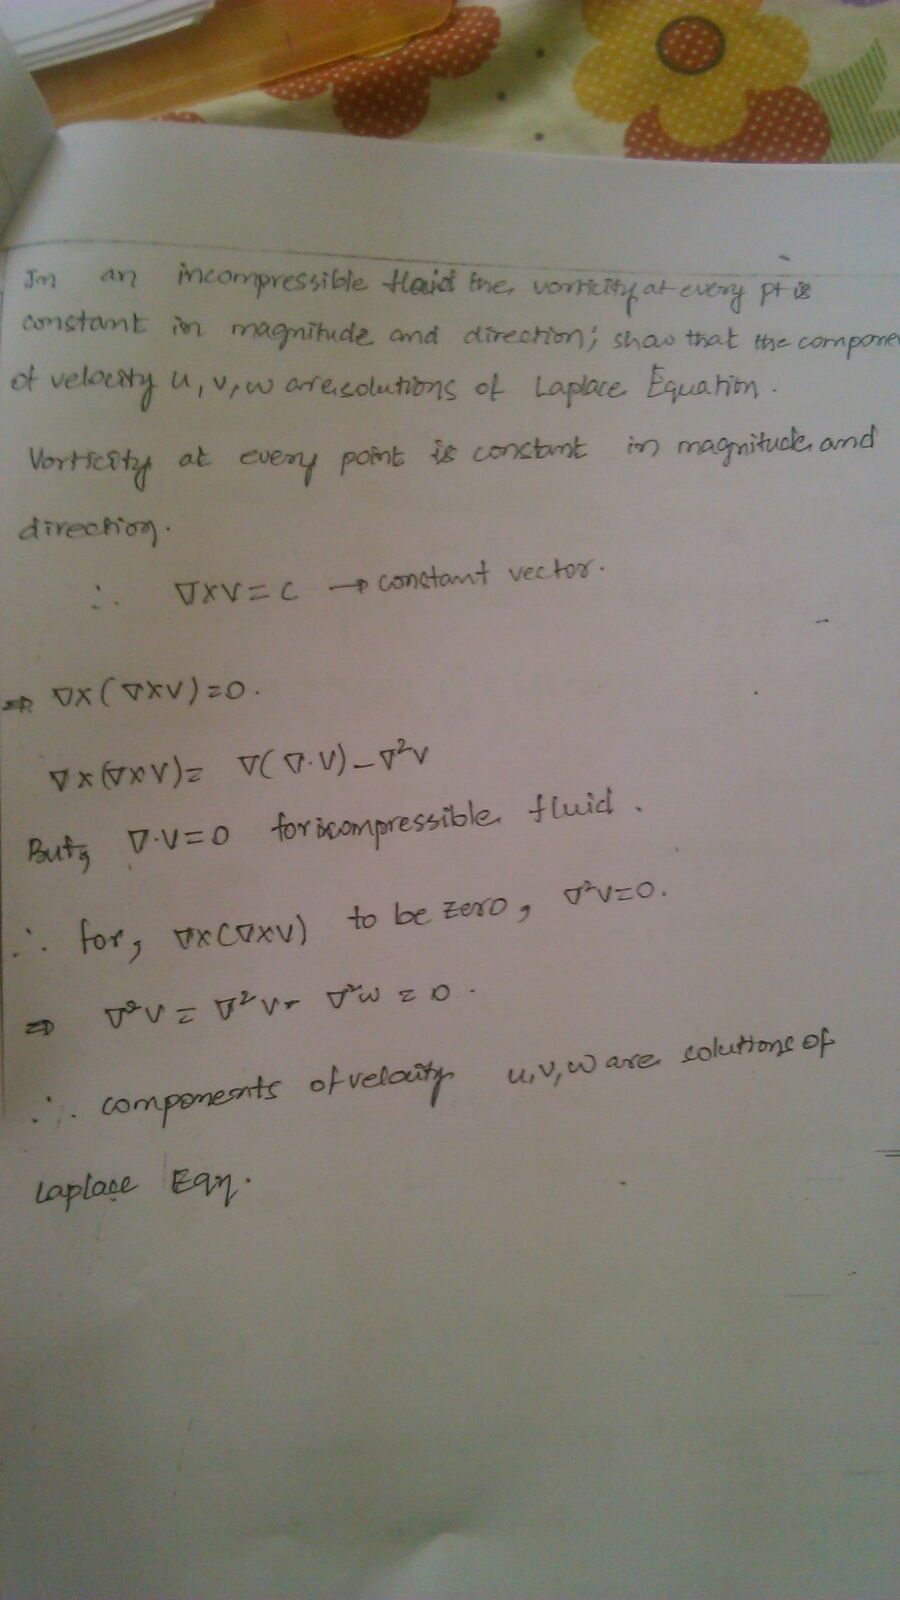 In an incompressible fluid the vorticity at every pt is
constant in magnitude and direction; show that the compone
of velocity u, v, w are solutions of Laplace Equation.
Vorticity at every point is constant in magnitude and
direction.
∴ ∇×V = C → constant vector.
⇒ ∇×(∇×V) = 0.
∇×(∇×V) = ∇(∇·V) - ∇²V
But, ∇·V = 0 for incompressible fluid.
∴ for, ∇×(∇×V) to be zero, ∇²V = 0.
⇒ ∇²V = ∇²V = ∇²w = 0.
∴ components of velocity u, v, w are solutions of
Laplace Eqn.